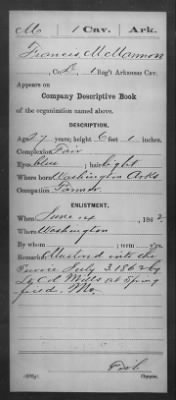 M 1 Cav. Ark.
Francis McMannon
, Co. , 1 Reg't Arkansas Cav.
Appears on
Company Descriptive Book
of the organization named above.
DESCRIPTION.
Age 27 years; height 6 feet 1 inches.
Complexion Fair
Eyes blue ; hair light
Where born Washington Arks
Occupation Farmer
ENLISTMENT.
When June 14 , 1862.
Where Washington
By whom ; term 3 y'rs.
Remarks: Mustered into the
Service July 3 1862 by
Lt Mills at Spring
field, Mo.
Copyist.